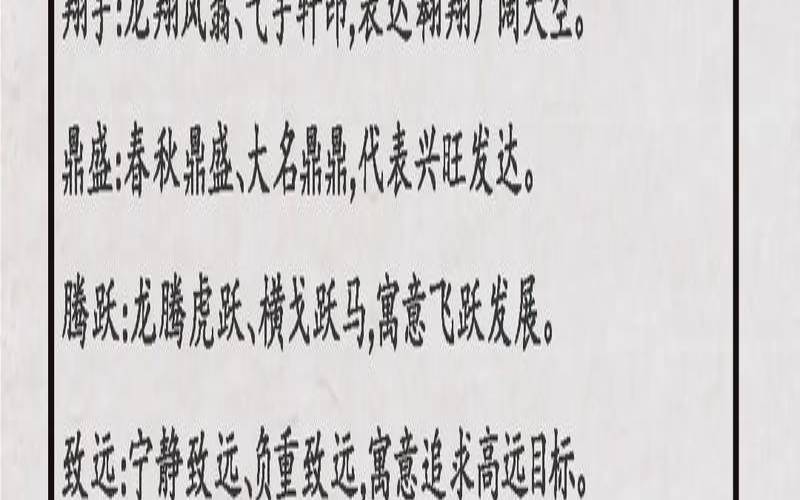 翔宇:龙翔凤翥、气宇轩昂,表达翱翔广阔天空。
鼎盛:春秋鼎盛、大名鼎鼎,代表兴旺发达。
腾跃:龙腾虎跃、横戈跃马,寓意飞跃发展。
致远:宁静致远、负重致远,寓意追求高远目标。